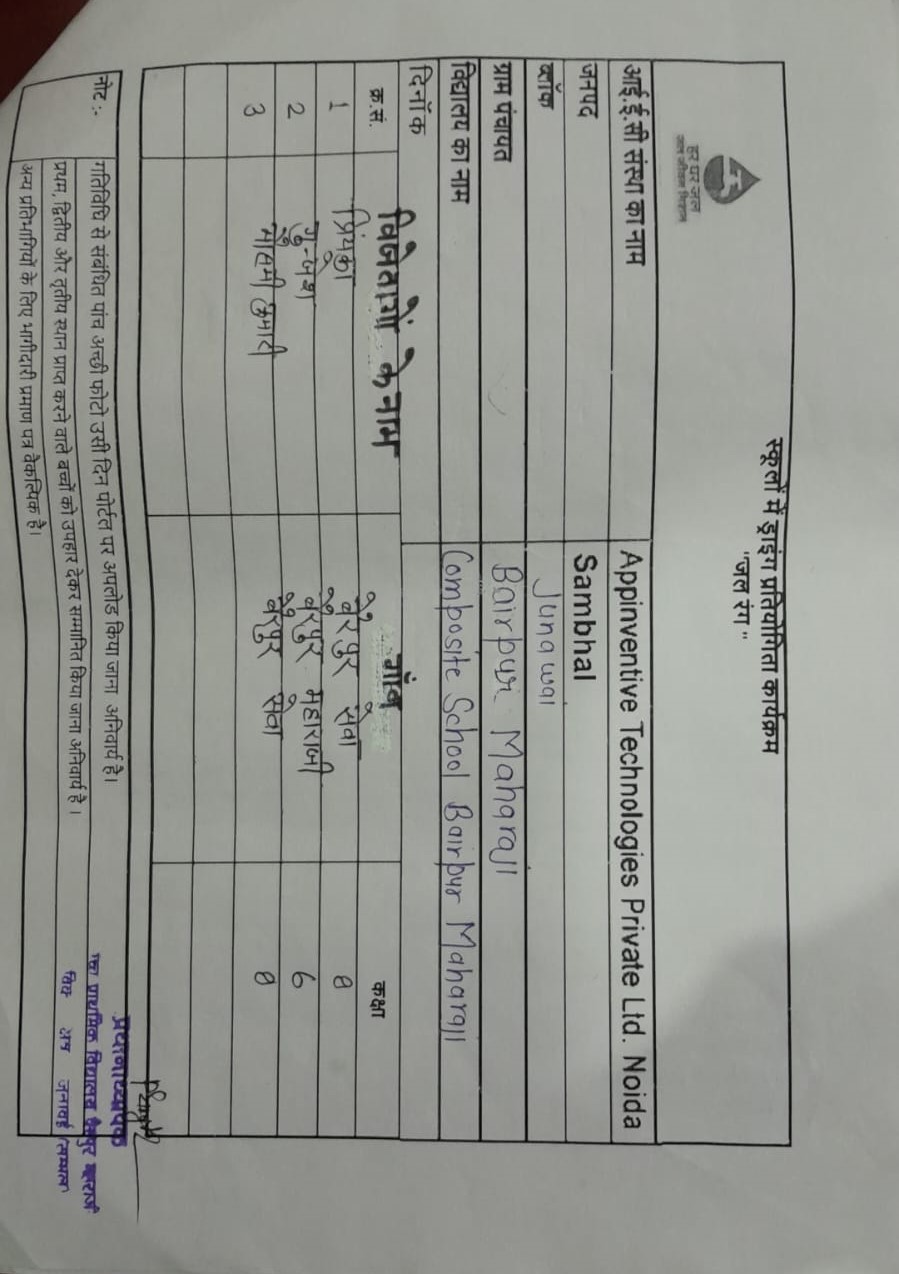 स्कूलों में ड्राइंग प्रतियोगिता कार्यक्रम
"जल रंग"
हर घर जल
जल जीवन मिशन
आई.ई.सी संस्था का नाम Appinventive Technologies Private Ltd. Noida
जनपद Sambhal
ब्लॉक Junawai
ग्राम पंचायत Bairpur Maharaji
विद्यालय का नाम Composite School Bairpur Maharaji
दिनॉक
क्र.सं. विजेताओं के नाम गॉव कक्षा
1 प्रियंका बैरपुर सेवा 8
2 बैरपुर महाराजी 6
3 कुमारी बैरपुर सेवा 8
नोट :- गतिविधि से संबंधित पांच अच्छी फोटो उसी दिन पोर्टल पर अपलोड किया जाना अनिवार्य है।
प्रथम, द्वितीय और तृतीय स्थान प्राप्त करने वाले बच्चों को उपहार देकर सम्मानित किया जाना अनिवार्य है।
अन्य प्रतिभागियों के लिए भागीदारी प्रमाण पत्र वैकल्पिक है।
प्रधानाध्यापक
प्राथमिक विद्यालय